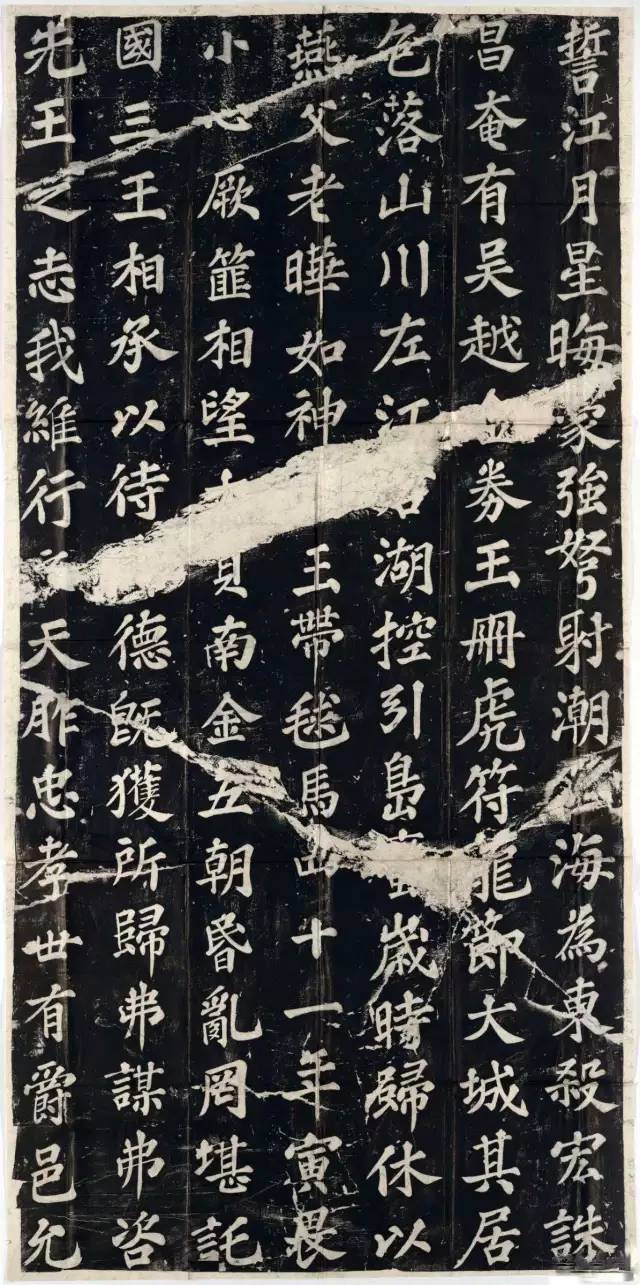 誓江月星晦蒙強弩射潮海為東殺宏誅
昌奄有吳越金券玉冊虎符龍節大城其居
包落山川左江湖控引島蠻歲時歸休以
燕父老曄如神玉帶毬馬四十一年寅畏
小心厥篚相望貝南金五朝昏亂罔堪託
國三王相承以待德既獲所歸弗謀弗咨
先王之志我維行之天胙忠孝世有爵邑允